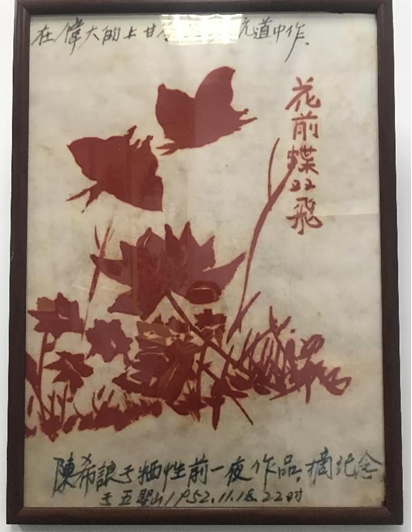 在偉大的上甘 道中作.
花前蝶双飛
陳希 于牺牲前一夜作品.摘纪念
于五聖山1952.11.18.22时